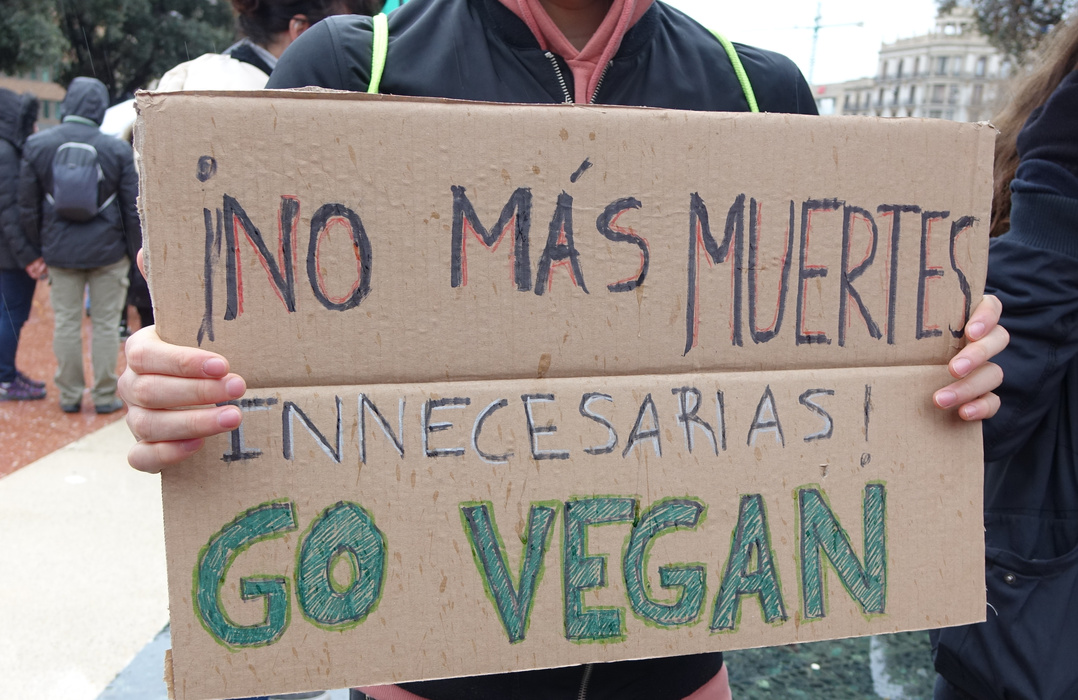 ¡NO MÁS MUERTES
INNECESARIAS!
GO VEGAN